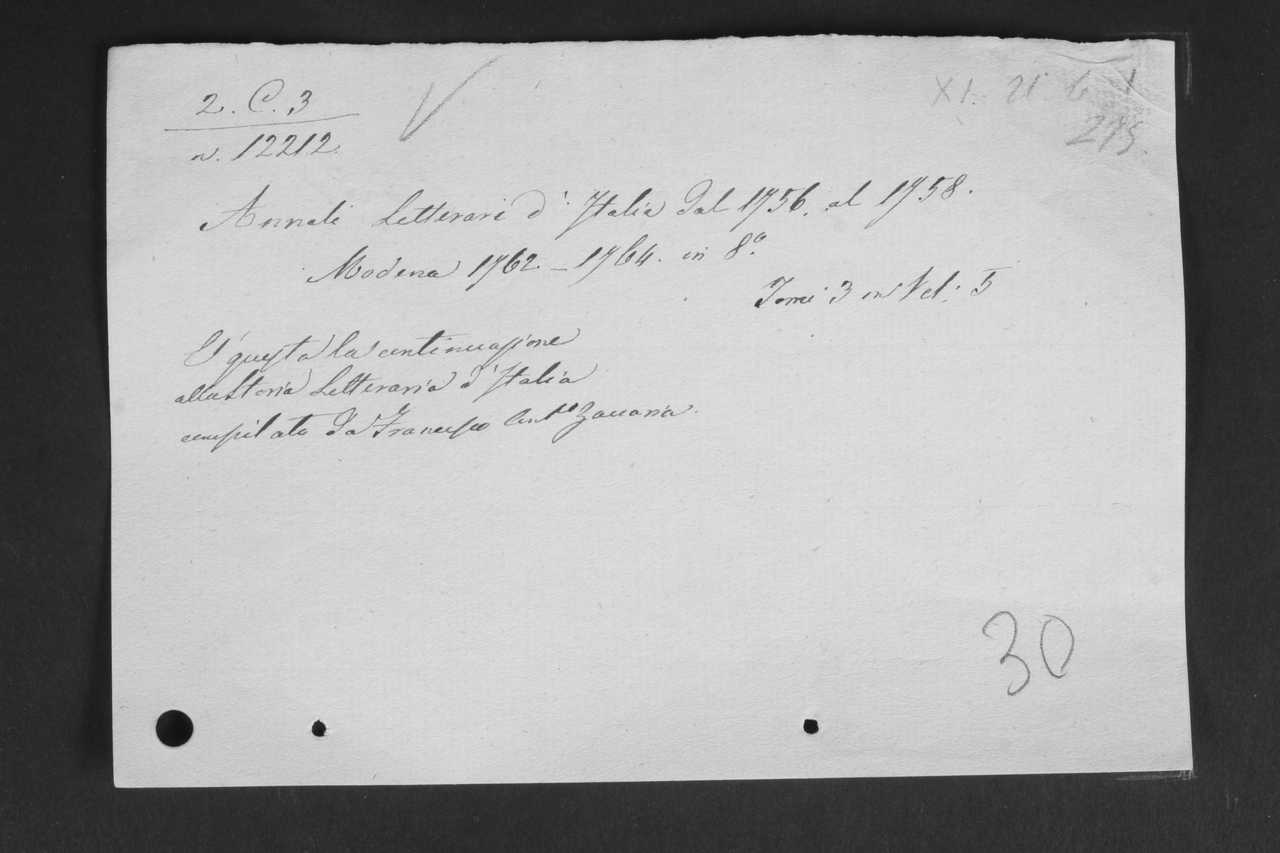 2. C. 3
XI. 21 6 1
n. 12212.
275.
Annali Letterari d'Italia dal 1756. al 1758.
Modena 1762. – 1764. in 8.º
Tomi 3 in Vol: 5
E' questa la continuazione
alla Storia Letteraria d'Italia
compilata da Francesco Ant.º Zaccaria.
30